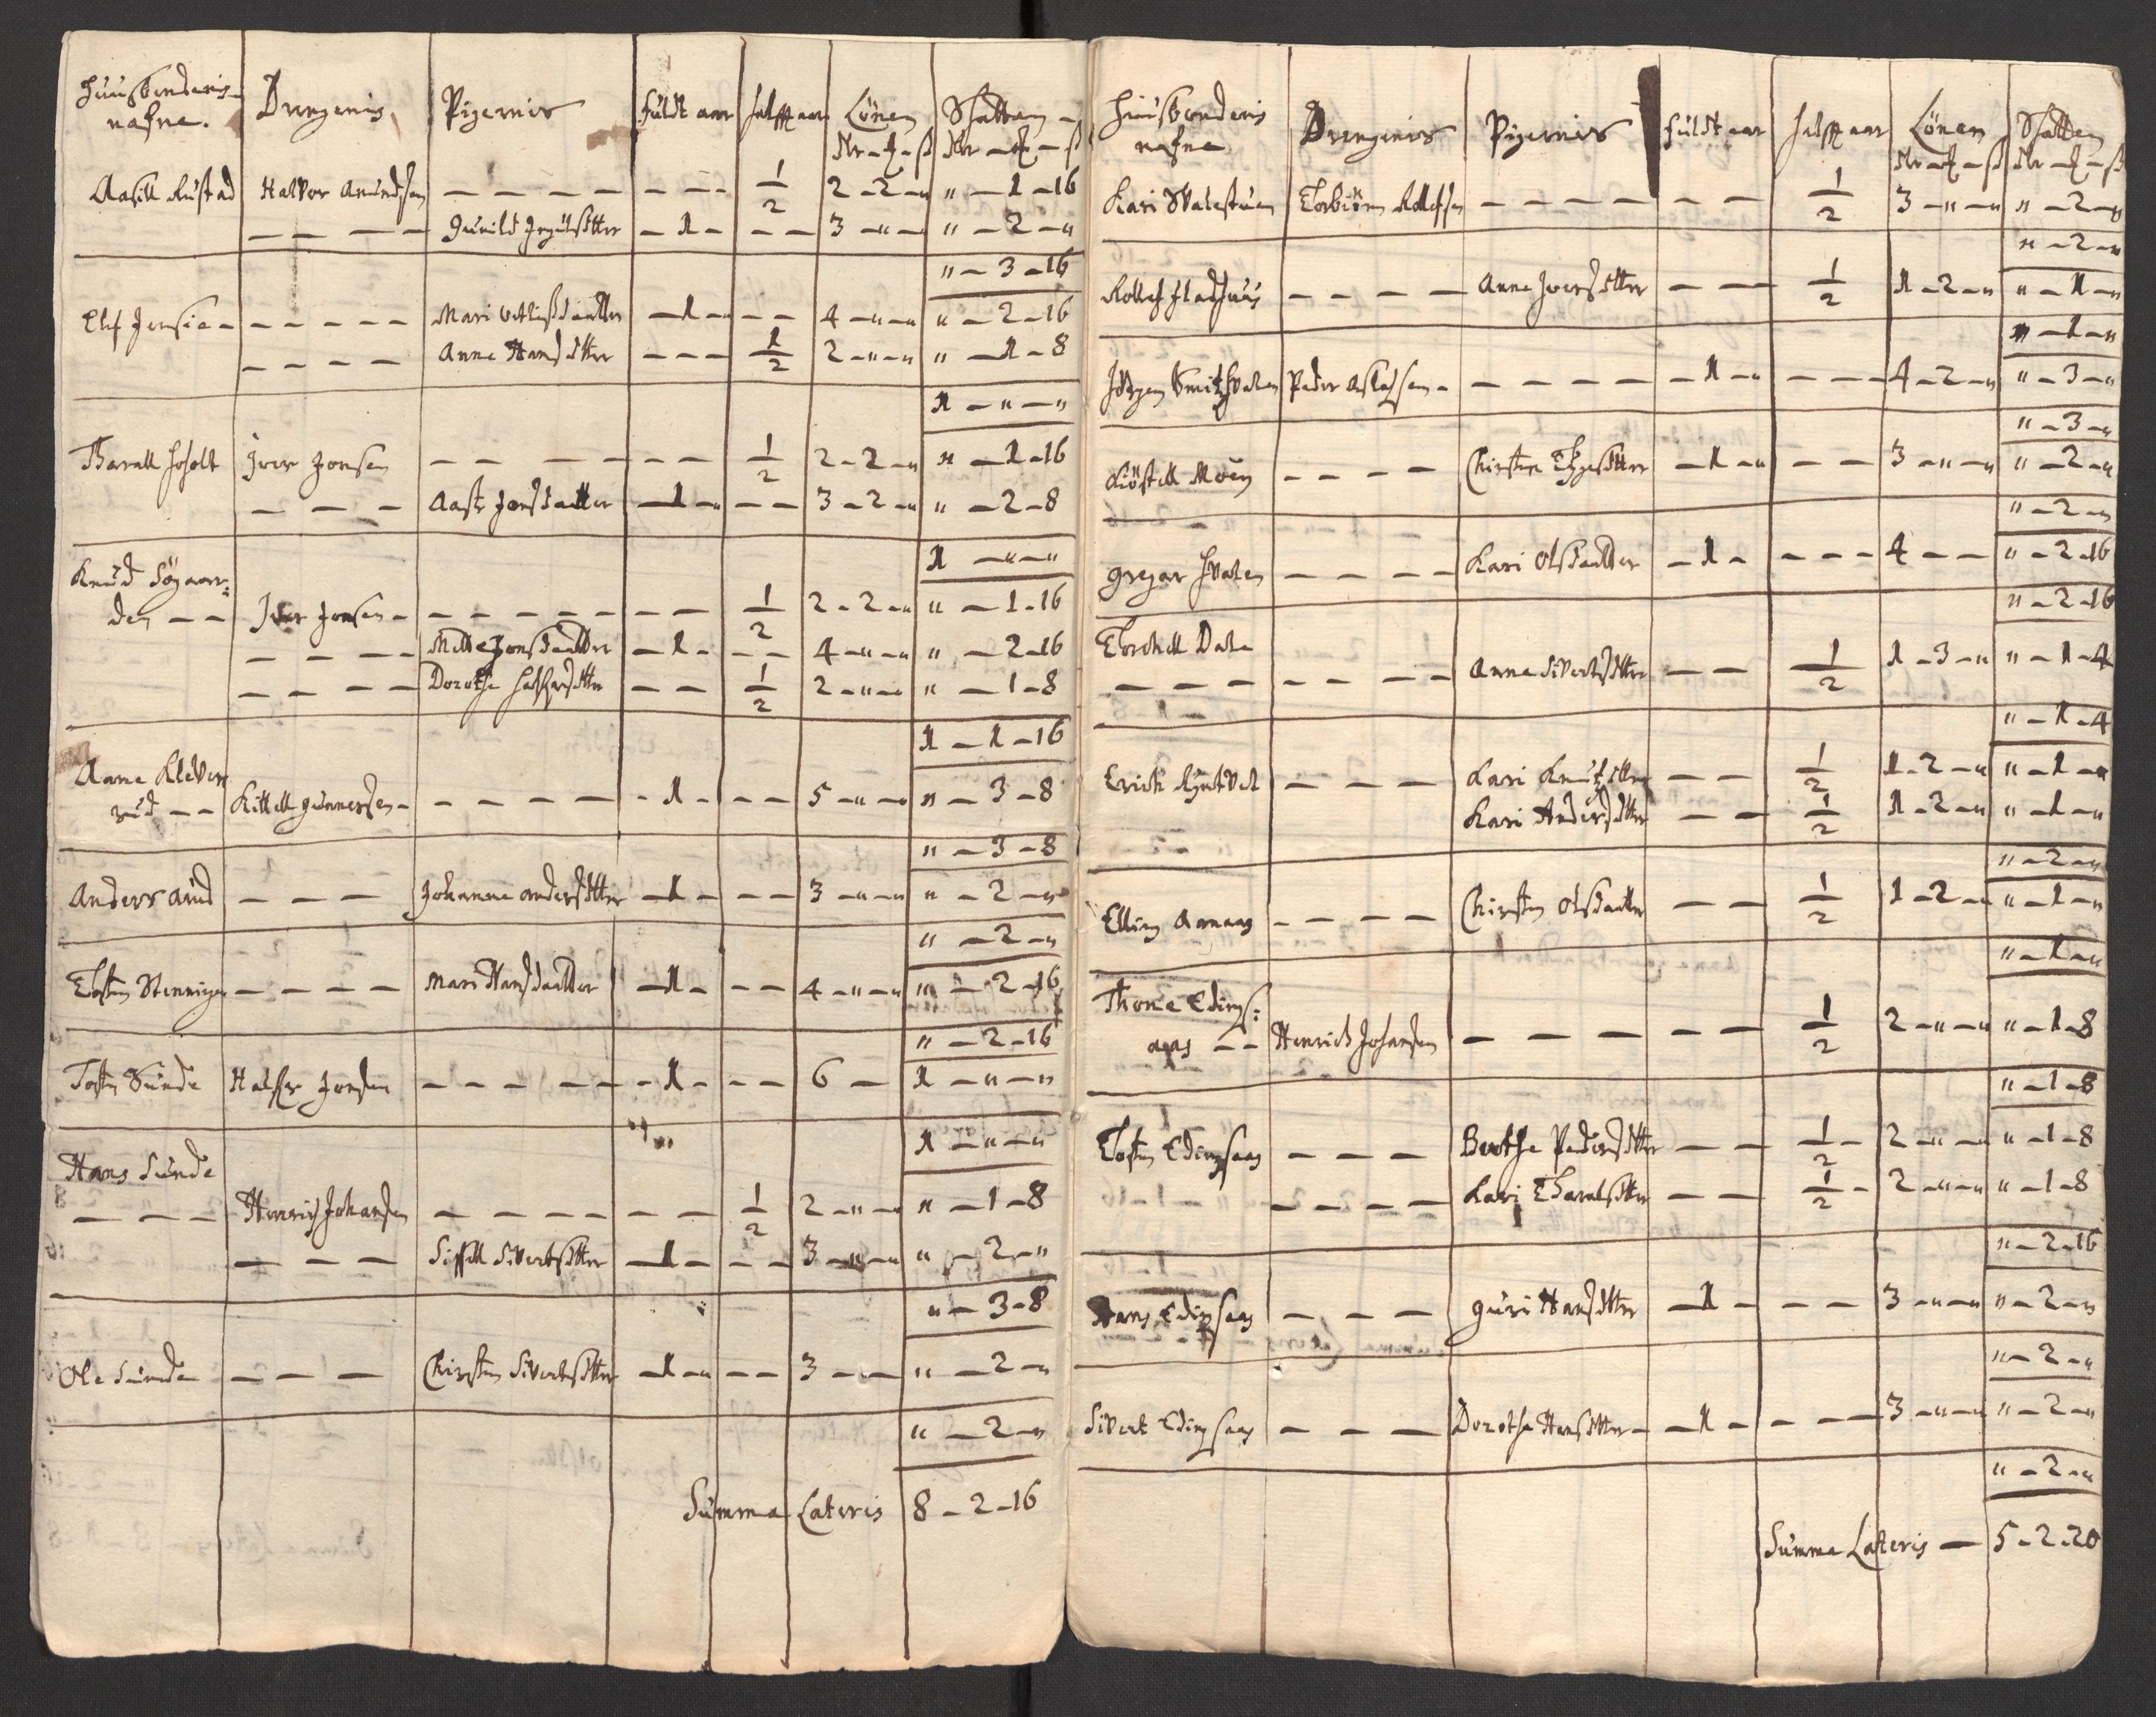 Huusbonderis nafne. Drengenis Pigernis fuldt aar halft aar Lönen Skatten
Rr - ȼ - ß Rr - ȼ - ß
Aasill Rustad Halvor Amundsen - - - - - - - 1/2 2 - 2 - " " - 1 - 16
- - - - Gunild - 1 - - - 3 - " - " " - 2 - "
" - 3 - 16
Elef Jensie - - - - - - Mari - 1 - " - - 4 - " - " " - 2 - 16
- - - - Anne Hansdtter - - - 1/2 2 - " - " " - 1 - 8
1 - " - "
Tharall Joholt Jver Jonsen - - - - - - 1/2 2 - 2 - " " - 1 - 16
- - - Aaste Jonsdatter - 1 - " - - 3 - 2 - " " - 2 - 8
1 - " - "
Knud Söegaar=
den - - Jver Jonsen - - - - - - - - 1/2 2 - 2 - " " - 1 - 16
- - - - Mille Jonsdatter - 1 - - - 4 - " - " " - 2 - 16
- - - - Dorothe - - 1/2 2 - " - " " - 1 - 8
1 - 1 - 16
Aane Kleven
rud - - Kittill Gunnersen - - - - - - 1 - - - 5 - " - " " - 3 - 8
" - 3 - 8
Anders Arud - - - Johanne Andersdtter - 1 - - - 3 - " - " " - 2 - "
" - 2 - "
Tosten - - - - Mari Hansdatter - 1 - - - 4 - " - " " - 2 - 16
" - 2 - 16
Tosten Sunde Halfer Jonsen - - - - - - 1 - - - 6 - 1 - " - "
1 - " - "
Hans Sunde
- - - Henrich Johansen - - - - - - - 1/2 2 - " - " " - 1 - 8
- - - Sissill Sivertsdtter - 1 - - - 3 - " - " " - 2 - "
" - 3 - 8
Ole Sunde - - - Chirsten Sivertsdtter - 1 - " - - 3 - " - " " - 2 - "
" - 2 - "
Summa Lateris 8 - 2 - 16
Huusbonderis nafne Drengenis Pigernis fuldt aar halft aar Lönen Skatten
Rr - ȼ - ß Rr - ȼ - ß
Kari Torbiörn Rollefsen - - - - - - 1/2 3 - " - " " - 2 - "
" - 2 - "
Rollef Fladhuus - - - - Anne Jversdtter - - 1/2 1 - 2 - " " - 1 - "
" - 1 - "
Jörgen Peder Aslachsen - - - - - - 1 - " - - - 4 - 2 - " " - 3 - "
" - 3 - "
Kiöstill Moen - - - - Chirsten - 1 - " - - 3 - " - " " - 2 - "
" - 2 - "
Gregar Hvalen - - - - Kari Olsdatter - 1 - - - - 4 - - " - 2 - 16
" - 2 - 16
Torchill Dale
- - - - - - - - Anne Sivertsdtter - - 1/2 1 - 3 - " " - 1 - 4
" - 1 - 4
Erich - - - - Kari Knutzdtter - - 1/2 1 - 2 - " " - 1 - "
Kari Andersdtter - - 1/2 1 - 2 - " " - 1 - "
" - 2 - "
Elling Aamaas - - - - Chirsten Olsdatter - - 1/2 1 - 2 - " " - 1 - "
" - 1 - "
Thore Edings=
aas - - Henrich Johansen - - - - - - 1/2 2 - " - " " - 1 - 8
" - 1 - 8
Tosten Edingsaas - - - Berthe Pedersdtter - - 1/2 - 2 - " - " " - 1 - 8
- - - - Kari Tharalsdtter - - 1/2 - 2 - " - " " - 1 - 8
" - 2 - 16
Hans Edingsaas - - - Guri Hansdtter - 1 - - - 3 - " - " " - 2 - "
" - 2 - "
Sivert Edingsaas - - - Dorothe Hansdtter - - 1 - - - - 3 - " - " " - 2 - "
" - 2 - "
Summa Lateris - 5 - 2 - 20